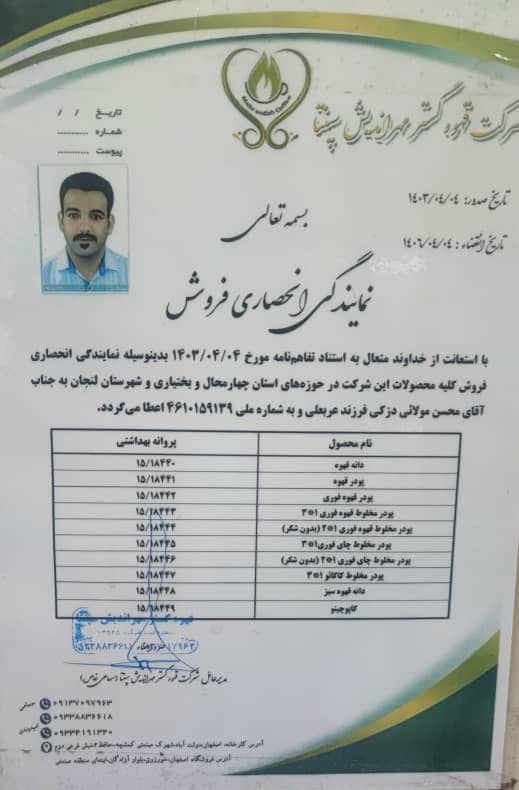 شرکت قهوه گستر مهراندیش سپنتا
تاریخ / /
شماره ............
پیوست ............
تاریخ صدور: ۱۴۰۳/۰۴/۰۴
تاریخ انقضاء : ۱۴۰۶/۰۴/۰۴
بسمه تعالی
نمایندگی انحصاری فروش
با استعانت از خداوند متعال به استناد تفاهم‌نامه مورخ ۱۴۰۳/۰۴/۰۴ بدینوسیله نمایندگی انحصاری
فروش کلیه محصولات این شرکت در حوزه‌های استان چهارمحال و بختیاری و شهرستان لنجان به جناب
آقای محسن مولائی دزکی فرزند عربعلی و به شماره ملی ۴۶۱۰۱۵۹۱۳۹ اعطا می‌گردد.
نام محصول پروانه بهداشتی
دانه قهوه ۱۵/۱۸۴۴۰
پودر قهوه ۱۵/۱۸۴۴۱
پودر قهوه فوری ۱۵/۱۸۴۴۲
پودر مخلوط قهوه فوری ۱*۳ ۱۵/۱۸۴۴۳
پودر مخلوط قهوه فوری ۱*۲ (بدون شکر) ۱۵/۱۸۴۴۴
پودر مخلوط چای فوری ۱*۳ ۱۵/۱۸۴۴۵
پودر مخلوط چای فوری ۱*۲ (بدون شکر) ۱۵/۱۸۴۴۶
پودر مخلوط کاکائو ۱*۳ ۱۵/۱۸۴۴۷
دانه قهوه سبز ۱۵/۱۸۴۴۸
کاپوچینو ۱۵/۱۸۴۴۹
قهوه گستر مهراندیش
مدیرعامل شرکت قهوه گستر مهراندیش سپنتا (سهامی خاص)
۰۹۱۳۷۰۹۷۹۶۳
۰۹۳۳۸۸۳۶۶۱۸
۰۹۳۳۴۱۹۱۳۴۰
آدرس کارخانه: اصفهان،دولت آباد،شهرک صنعتی کمشچه،حافظ ۲شمالی فرعی دوم
آدرس فروشگاه اصفهان،خورزوق،بلوار آزادگان،ابتدای منطقه صنعتی